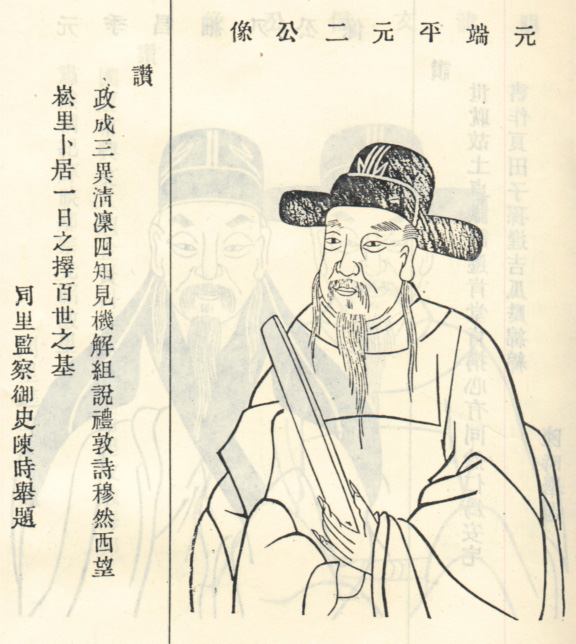 元端平元二公像
讚
政成三異清凜四知見機解組說禮敦詩穆然西望
崧里卜居一日之擇百世之基
同里監察御史陳時舉題